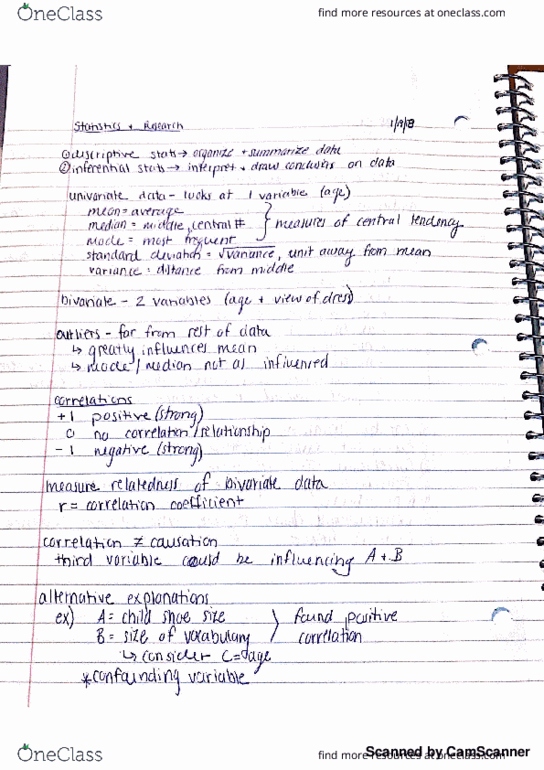 OneClass
find more resources at oneclass.com
Statistics + Research 1/9/18
① descriptive stats → organize + summarize data
② inferential stats → interpret + draw conclusions on data
univariate data - looks at 1 variable (age)
mean = average
median = middle, central # } measures of central tendency
mode = most frequent
standard deviation = √variance, unit away from mean
variance = distance from middle
bivariate - 2 variables (age + view of dress)
outliers - far from rest of data
↳ greatly influences mean
↳ mode / median not as influenced
correlations
+1 positive (strong)
0 no correlation / relationship
-1 negative (strong)
measure relatedness of bivariate data
r = correlation coefficient
correlation ≠ causation
third variable could be influencing A + B
alternative explanations
ex) A = child shoe size } found positive
B = size of vocabulary correlation
↳ consider C = age
*confounding variable
OneClass
find more resources at oneclass.com
Scanned by CamScanner